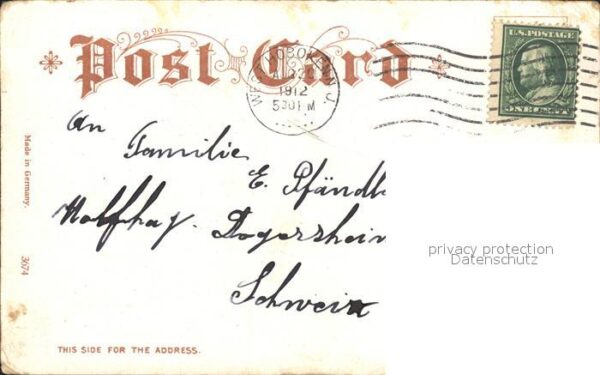 Post Card
WEST HOBOKEN N.J.
1912
5 30 P M
U.S. POSTAGE
ONE CENT
Made in Germany.
3674
An
Familie
E. Pfändl
Wolfhag. Degersheim
Schweiz
privacy protection
Datenschutz
THIS SIDE FOR THE ADDRESS.